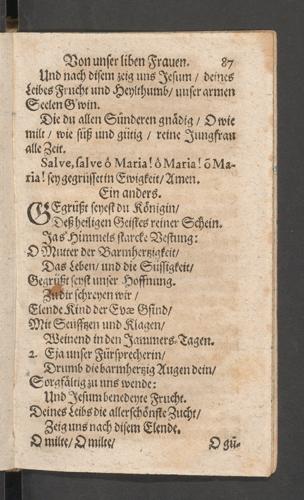 Von unser liben Frauen. 87
Und nach disem zeig uns Jesum / deines
Leibes Frucht und Heylthumb / unser armen
Seelen Gwin.
Die du allen Sünderen gnädig / O wie
milt / wie süß und gütig / reine Jungfrau
alle Zeit.
Salve, salve ô Maria! ô Maria! ô Ma-
ria! sey gegrüsset in Ewigkeit / Amen.
Ein anders.
GEgrüßt seyest du Königin /
Deß heiligen Geistes reiner Schein.
Jas Himmels starcke Vestung:
O Mutter der Barmhertzigkeit /
Das Leben / und die Süssigkeit /
Gegrüßt seyst unser Hoffnung.
Zu dir schreyen wir /
Elende Kind der Evæ Gsind /
Mit Seufftzen und Klagen /
Weinend in den Jammers-Tagen.
2. Eja unser Fürsprecherin /
Drumb die barmhertzig Augen dein /
Sorgfältig zu uns wende:
Und Jesum benedeyte Frucht.
Deines Leibs die allerschönste Zucht /
Zeig uns nach disem Elende.
O milte / O milte / O gü-